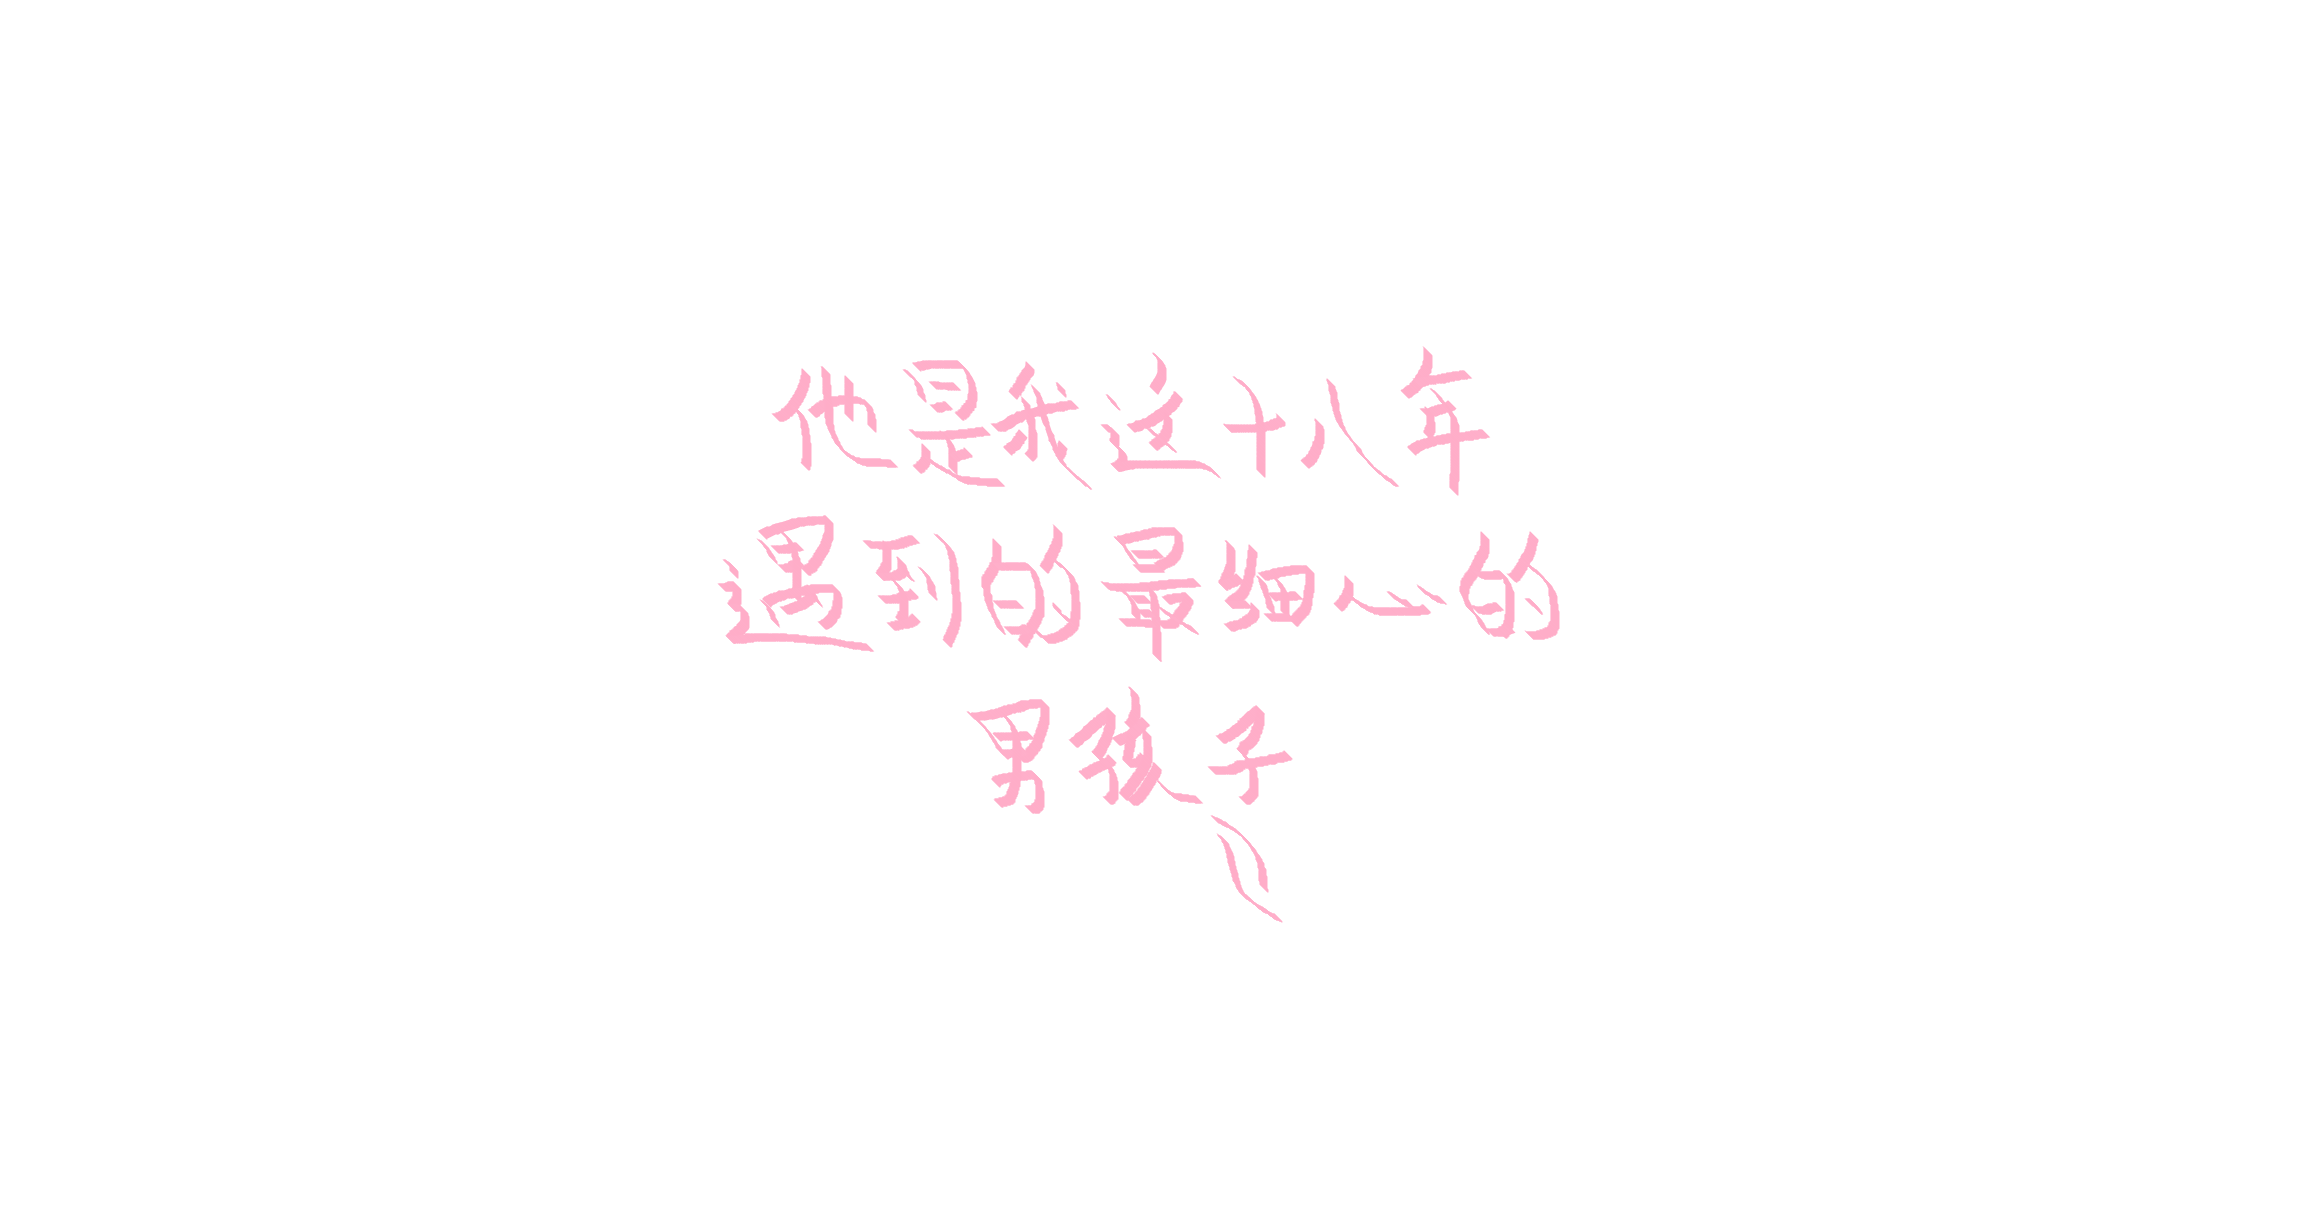 他是我这十八年
遇到的最细心的
男孩子